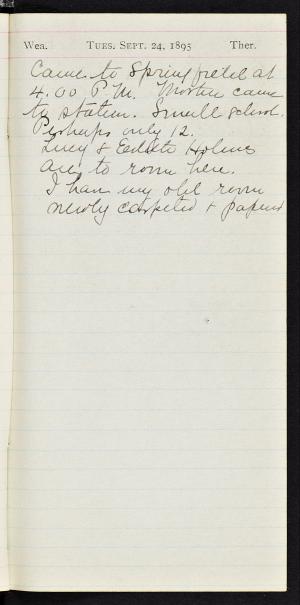 Wea. TUES. SEPT. 24, 1895 Ther.
Came to Springfield at
4.00 P.M. Morton came
to station. Small school.
Perhaps only 12.
Lucy & Edith Holmes
are to room here.
I have my old room
newly carpeted & papered